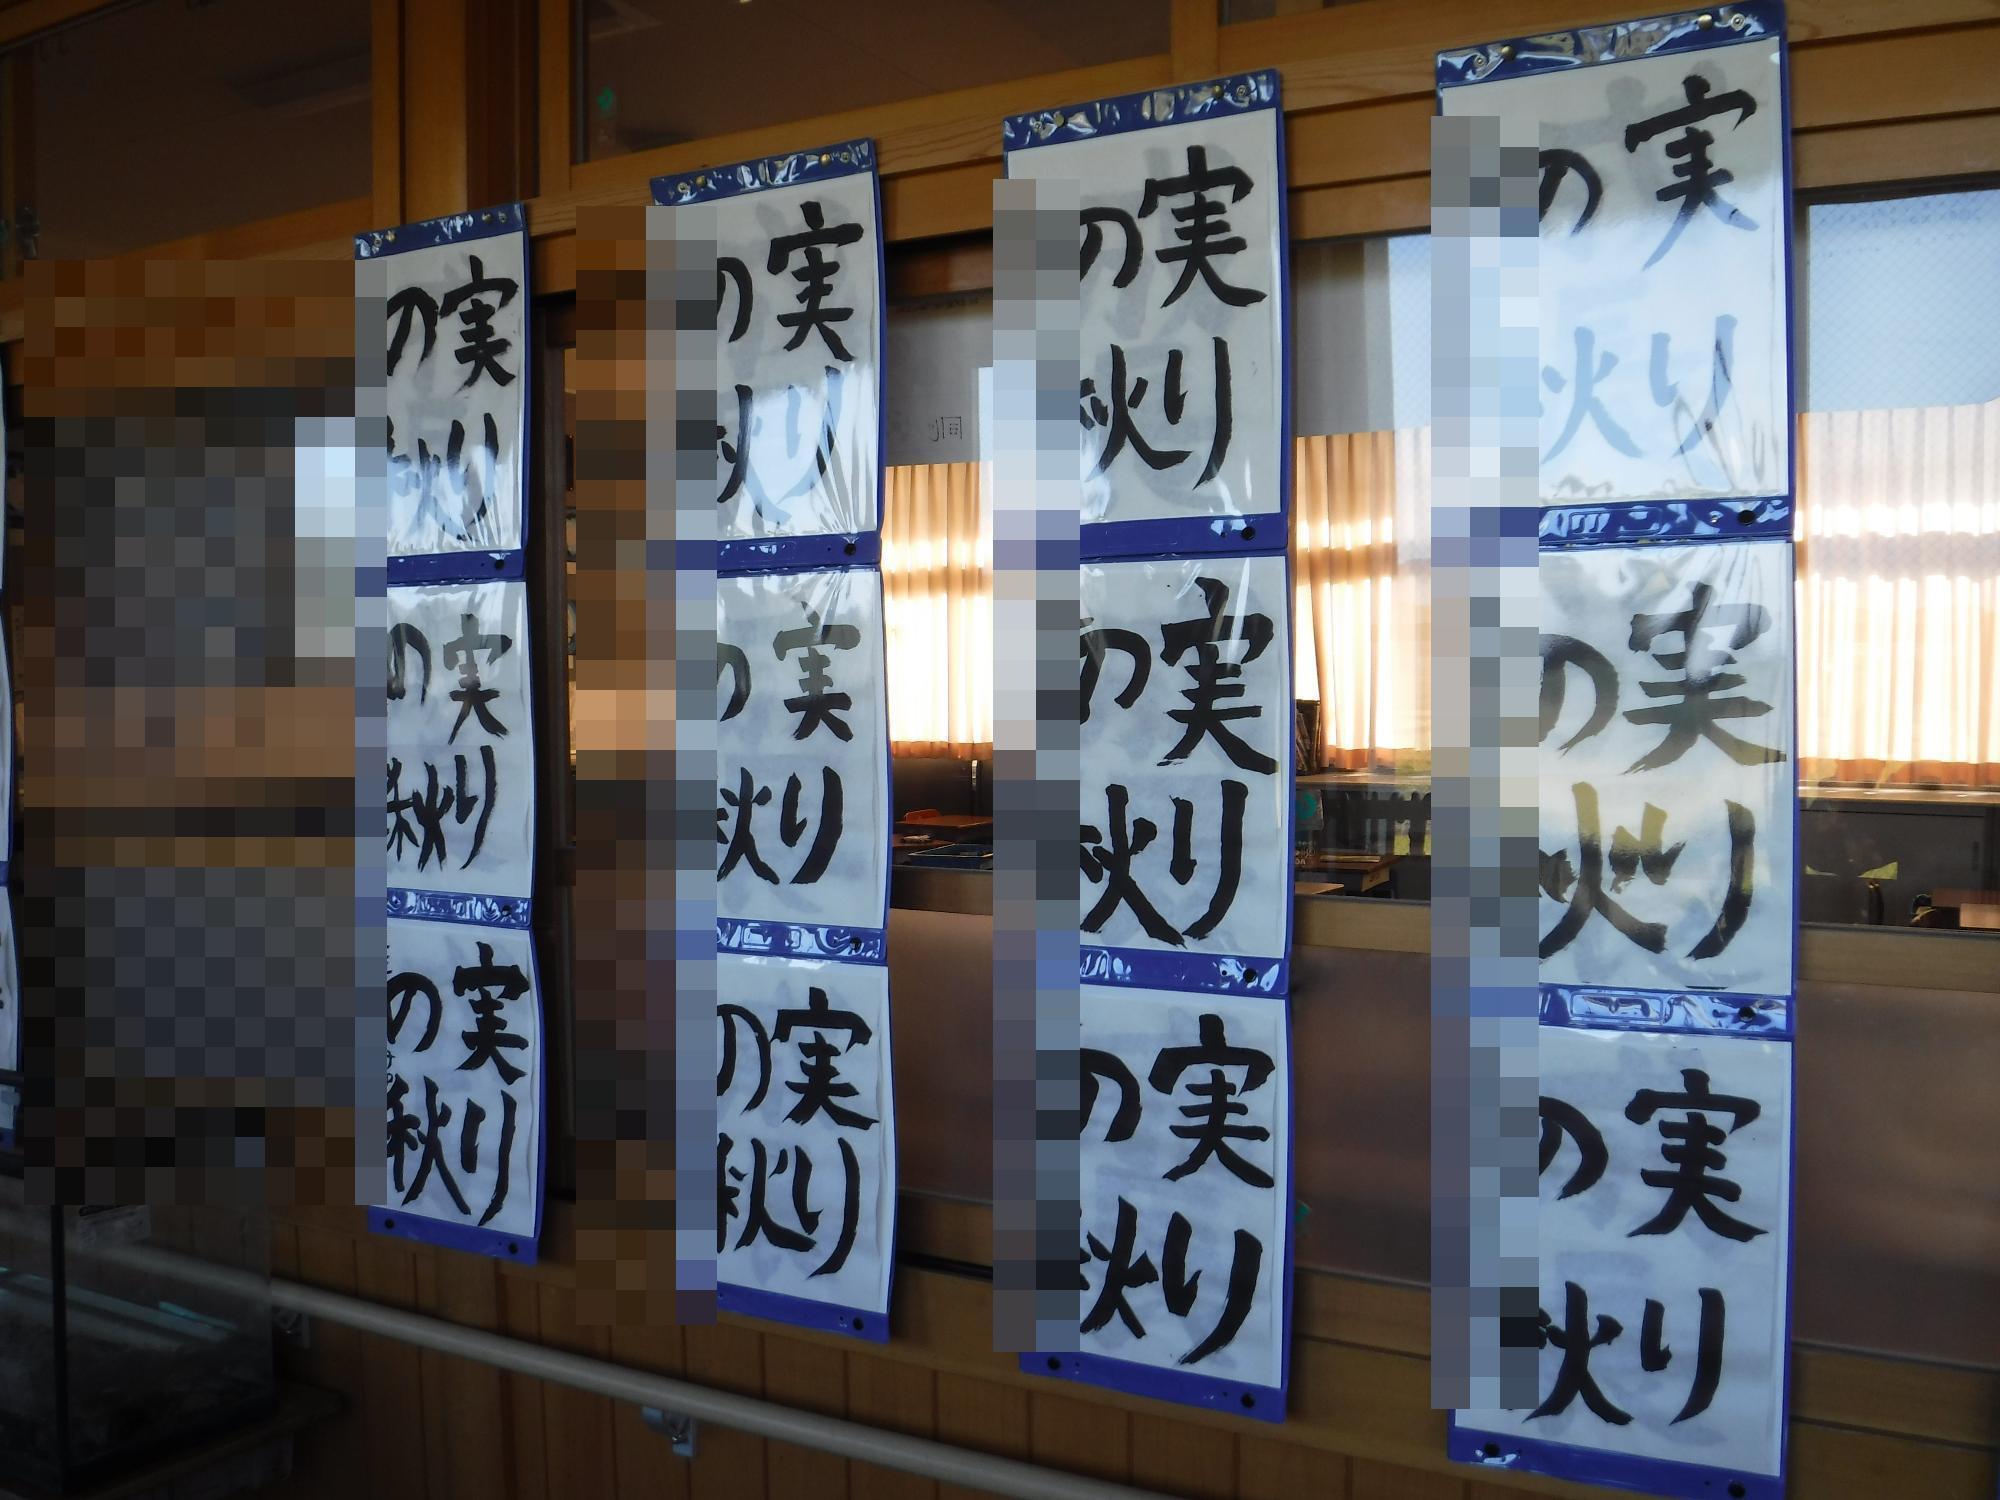 実り
の秋
実り
の秋
実り
の秋
実り
の秋
実り
の秋
実り
の秋
実り
の秋
実り
の秋
実り
の秋
実り
の秋
実り
の秋
実り
の秋